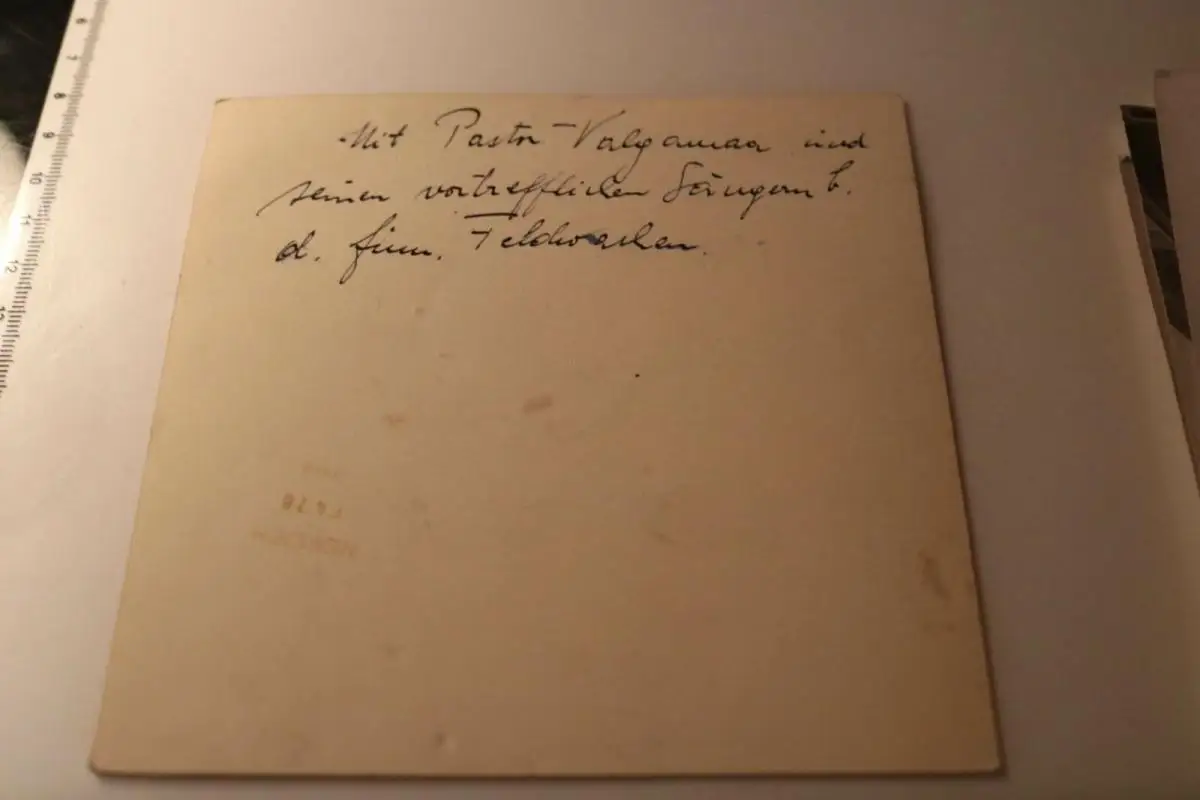 Mit Pastor Valgamaa und
seinen vortrefflichen Sängern b.
d. finn. Feldwachen.
6
7
8
9
10
11
12